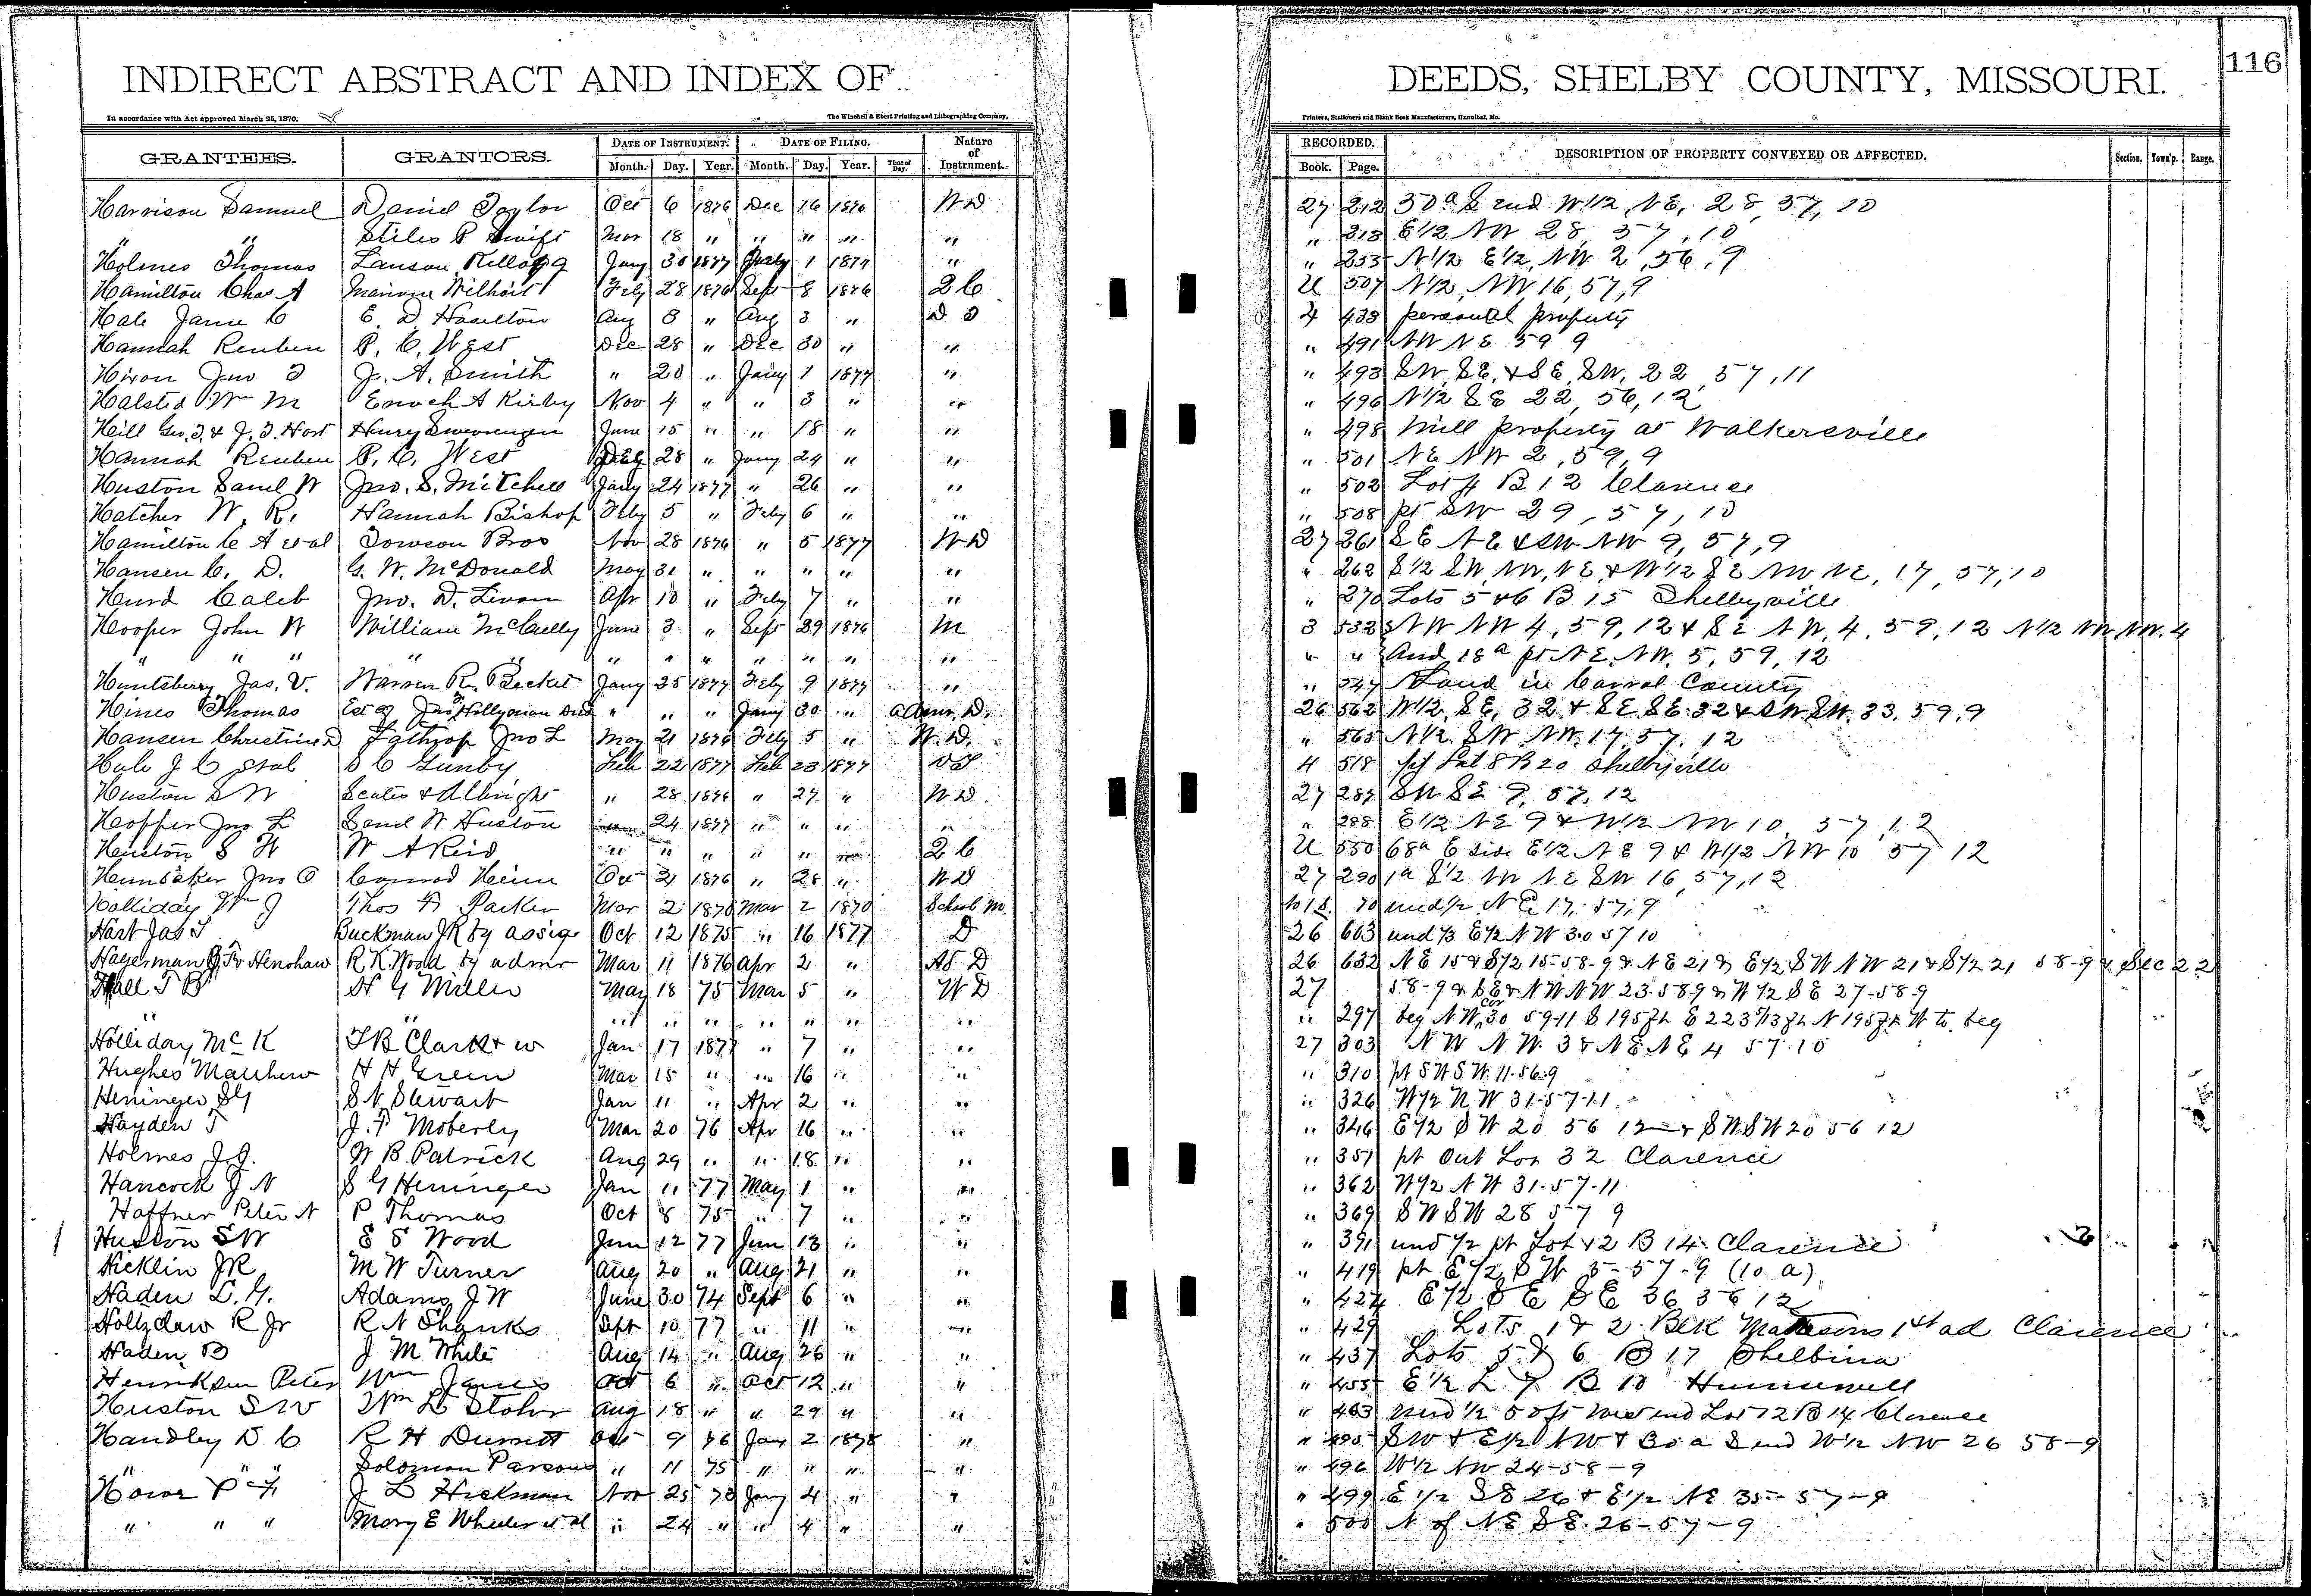 INDIRECT ABSTRACT AND INDEX OF
DEEDS, SHELBY COUNTY, MISSOURI.
116
In accordance with Act approved March 25, 1870.
The Winchell & Ebert Printing and Lithographing Company,
Printers, Stationers and Blank Book Manufacturers, Hannibal, Mo.
GRANTEES. GRANTORS. DATE OF INSTRUMENT. DATE OF FILING. Nature of Instrument. RECORDED. DESCRIPTION OF PROPERTY CONVEYED OR AFFECTED. Section. Town'p. Range.
Month. Day. Year. Month. Day. Year. Time of Day. Book. Page.
Harrison Samuel Daniel Taylor Oct 6 1876 Dec 16 1876 W D 27 212 30a S end W 1/2 NE, 28, 57, 10
" " Stiles P Swift Mar 18 " " " " " " 213 E 1/2 NW 28, 57, 10
Holmes Thomas Lanson Kellogg Jany 30 1877 Feby 1 1877 " " 253 N 1/2 E 1/2, NW 2, 56, 9
Hamilton Chas A Wilhoit Feby 28 1876 Sept 8 1876 2 C U 507 N 1/2, NW 16, 57, 9
Hale James C E. D Haselton Aug 3 " Aug 3 " D T 4 438 personal property
Hannah Reuben P. C. West Dec 28 " Dec 30 " " " 491 NW NE 59 9
Hixon Jno T J. A. Smith " 20 " Jany 1 1877 " " 493 SW, SE, & SE, SW, 22, 57, 11
Halsted Wm M Enoch A Kirby Nov 4 " " 3 " " " 496 N 1/2 SE 22, 56, 12
Hill Geo. T. & J. T. Hart Henry June 15 " " 18 " " " 498 Mill property at Walkersville
Hannah Reuben P. C. West Dec 28 " Jany 24 " " " 501 NE NW 2, 59, 9
Huston Saml W Jno. S. Mitchell Jany 24 1877 " 26 " " " 502 Lot 4 B 12 Clarence
Hatcher W. R. Hannah Bishop Feby 5 " Feby 6 " " " 508 pt SW 29, 57, 10
Hamilton C A et al Towson Bros Nov 28 1876 " 5 1877 W D 27 261 SE NE & SW NW 9, 57, 9
Hansen C. D. G. W. McDonald May 31 " " " " " " 262 S 1/2 SW, NW, NE, & W 1/2 SE NW NE, 17, 57, 10
Hurd Caleb Jno. D. Apr 10 " Feby 7 " " " 270 Lots 5 & 6 B 15 Shelbyville
Hooper John W William McCully June 3 " Sept 29 1876 M 3 532 NW NW 4, 59, 12 & SE NW, 4, 59, 12 N 1/2 NW NW. 4
" " " " " " " " " " " " " " And 18a pt NE, NW, 5, 59, 12
Huntsberry Jas. V. Warren R. Becket Jany 25 1877 Feby 9 1877 " " 547 Land in County
Hines Thomas Est of Jno Decd " " " Jany 30 " Admr D. 26 562 W 1/2, SE, 32 & SE SE 32 & SW SW, 33, 59, 9
Hansen Christine D Lathrop Jno L May 21 1876 Feby 5 " W. D. " 565 N 1/2 SW NW. 17, 57, 12
Hale J C et al S C Gunby Feb 22 1877 Feb 23 1877 D T 4 518 pt Lot 8 B 20 Shelbyville
Huston S W & Albright " 28 1876 " 27 " W D 27 287 SW SE 9, 57, 12
Hopper Jno L Saml W Huston 24 1877 " " " " " 288 E 1/2 NE 9 & W 1/2 NW 10, 57, 12
Huston S W W A Reid " " " " " " 2 C U 550 68a E side E 1/2 NE 9 & W 1/2 NW 10 57 12
Hunsaker Jno O Conrad Heim Oct 21 1876 " 28 " W D 27 290 1a S 1/2 NW NE SW 16, 57, 12
Holliday Wm J Thos H Parker Mar 2 1870 Mar 2 1870 School M. 70 und 1/2 NE 17, 57, 9
Hart Jas T Buckman J R by assige Oct 12 1875 " 16 1877 D 26 603 und 1/3 E 1/2 NW 30 57 10
Hagerman & Henshaw R K Wood by admr Mar 11 1876 Apr 2 " As D 26 632 NE 15 & S 1/2 15-58-9 & NE 21 & E 1/2 SW NW 21 & S 1/2 21 58-9 & Sec 22
Hall T B H G Miller May 18 75 Mar 5 " W D 27 58-9 & SE & NW NW 23-58-9 & W 1/2 SE 27-58-9
" " " " " " " " " " 297 beg NW cor 30 59-11 S 195 ft E 223 ft N 195 ft W to beg
Holliday McK T B Clark & w Jan 17 1877 " 7 " " 27 303 NW NW 3 & NE NE 4 57-10
Hughes Matthew H H Green Mar 15 " " 16 " " " 310 pt SW SW 11-56-9
Heninger S G S N Stewart Jan 11 " Apr 2 " " " 326 W 1/2 NW 31-57-11
Hayden T J. F Moberly Mar 20 76 Apr 16 " " " 346 E 1/2 SW 20 56 12 & SW SW 20 56 12
Holmes J. J. W B. Patrick Aug 29 " " 18 " " " 351 pt Out Lot 32 Clarence
Hancock J N S G Heninger Jan 11 77 May 1 " " " 362 W 1/2 NW 31-57-11
Haffner Peter N P Thomas Oct 8 75 " 7 " " " 369 SW SW 28 57 9
Huston S W E S Wood Jun 12 77 Jun 13 " " " 391 und 1/2 pt Lot 12 B 14 Clarence
Hicklin J R M W Turner Aug 20 " Aug 21 " " " 419 pt E 1/2 SW 5-57-9 (10 a)
Haden L. G. Adams J W June 30 74 Sept 6 " " " 427 E 1/2 SE SE 36 56 12
Holtzclaw R Jr R N Shanks Sept 10 77 " 11 " " " 429 Lots 1 & 2 Blk 1st ad Clarence
Haden B J M White Aug 14 " Aug 26 " " " 437 Lots 5 & 6 B 17 Shelbina
Henriksen Peter Wm James Oct 6 " Oct 12 " " " 455 E 1/2 L 7 B 10 Hunnewell
Huston S W Wm L Stohr Aug 18 " " 29 " " " 463 und 1/2 50 ft West end Lot 12 B 14 Clarence
Handley D C R H Durrett Oct 9 76 Jany 2 1878 " " 495 SW & E 1/2 NW & 30 a S end W 1/2 NW 26 58-9
" " Solomon Parsons " 11 75 " " " " " 496 W 1/2 NW 24-58-9
J L Hickman Nov 25 Jany 4 " " " 499 E 1/2 SE 26 & E 1/2 NE 35-57-9
" " " Mary E Wheeler et al " 24 " " 4 " " " 500 N of NE SE 26-57-9